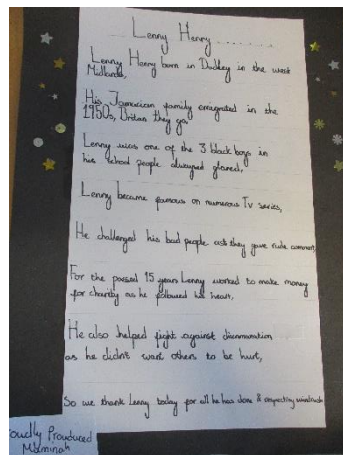 Lenny Henry..........
Lenny Henry born in Dudley in the west
Midlands,
His Jamaican family emagrated in the
1950s, Britan they go,
Lenny was one of the 3 black boys in
his school people alwayed glared,
Lenny became famous on numerous Tv series,
He challenged his bad people as they gave rude comment,
For the passed 15 years Lenny worked to make money
for charity as he followed his heart,
He also helped fight against discrimanation
as he didn't want others to be hurt,
So we thank Lenny today for all he has done & respecting windrush
Proudly Prouduced